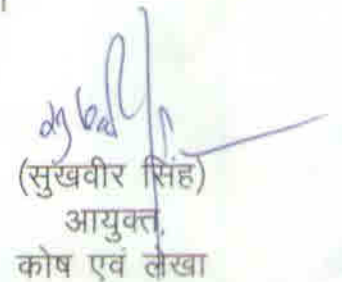 (सुखवीर सिंह)
आयुक्त,
कोष एवं लेखा